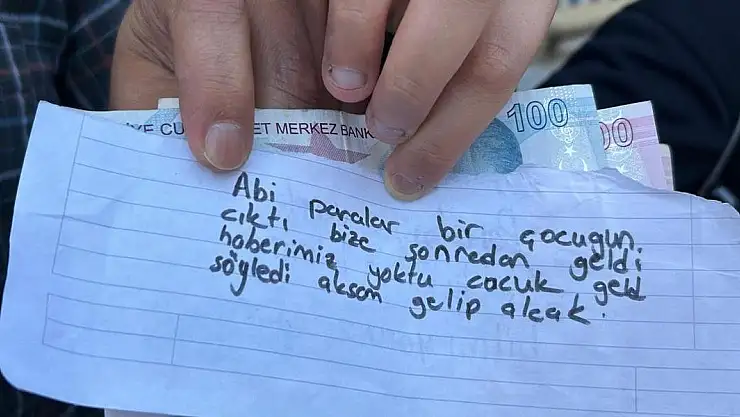 YE CU ET MERKEZ BANK 100 00
Abi paralar bir çocuğun.
çıktı bize sonredan geldi
haberimiz yoktu cocuk geld
söyledi aksam gelip alcak.